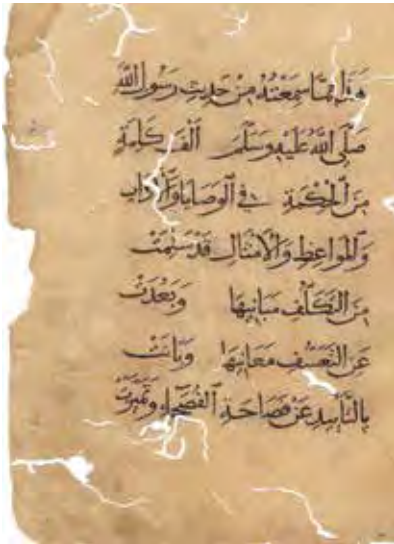 مما سمعته من حديث رسول الله
صلى الله عليه وسلم ألف كلمة
من الحكمة في الوصايا والآداب
والمواعظ والأمثال قد سلمت
من التكلف مبانيها وبعدت
عن التعسف معانيها وبانت
بالتأييد عن فصاحة الفصحاء وتميزت